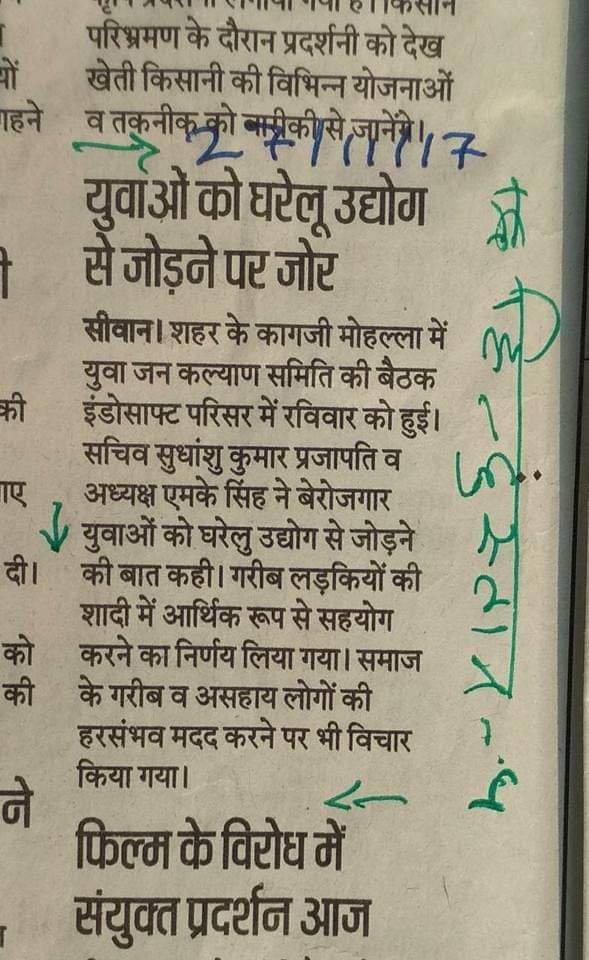 परिभ्रमण के दौरान प्रदर्शनी को देख
खेती किसानी की विभिन्न योजनाओं
व तकनीक को बारीकी से जानेंगे।
27/11/17
युवाओं को घरेलू उद्योग
से जोड़ने पर जोर
सीवान। शहर के कागजी मोहल्ला में
युवा जन कल्याण समिति की बैठक
इंडोसाफ्ट परिसर में रविवार को हुई।
सचिव सुधांशु कुमार प्रजापति व
अध्यक्ष एमके सिंह ने बेरोजगार
युवाओं को घरेलु उद्योग से जोड़ने
की बात कही। गरीब लड़कियों की
शादी में आर्थिक रूप से सहयोग
करने का निर्णय लिया गया। समाज
के गरीब व असहाय लोगों की
हरसंभव मदद करने पर भी विचार
किया गया।
फिल्म के विरोध में
संयुक्त प्रदर्शन आज
यों
गहने
की
गए
दी।
को
की
ने
हिन्दुस्तान